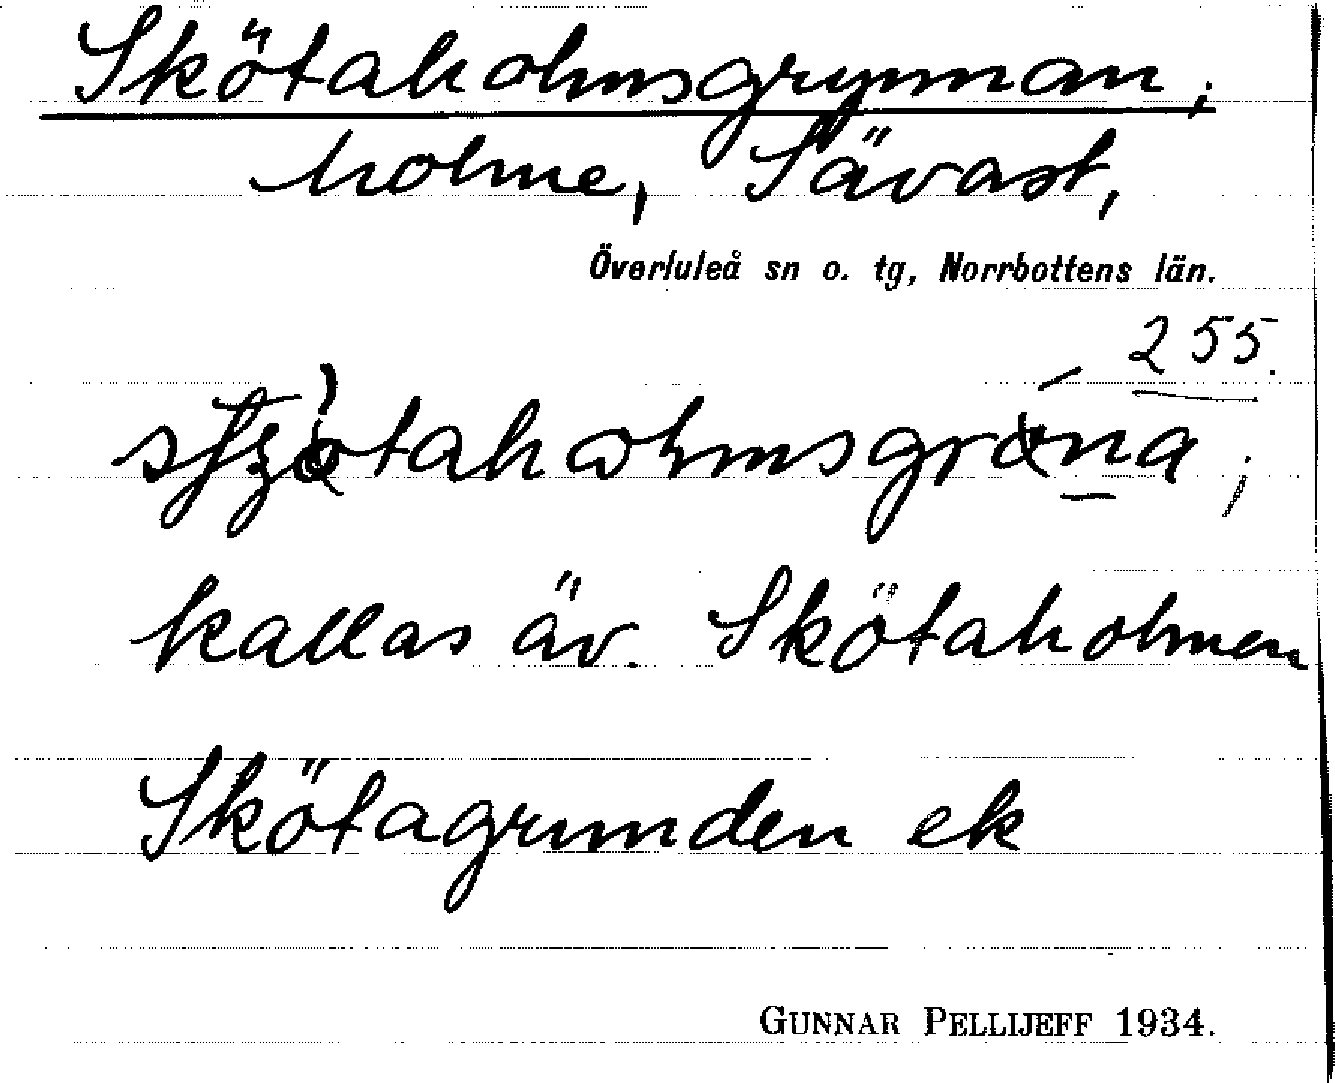 Skötaholmsgrynnan;
holme, Sävast,
Överluleå sn o. tg, Norrbottens län.
255.
kallas äv. Skötaholmen
Skötagrunden ek
GUNNAR PELLIJEFF 1934.